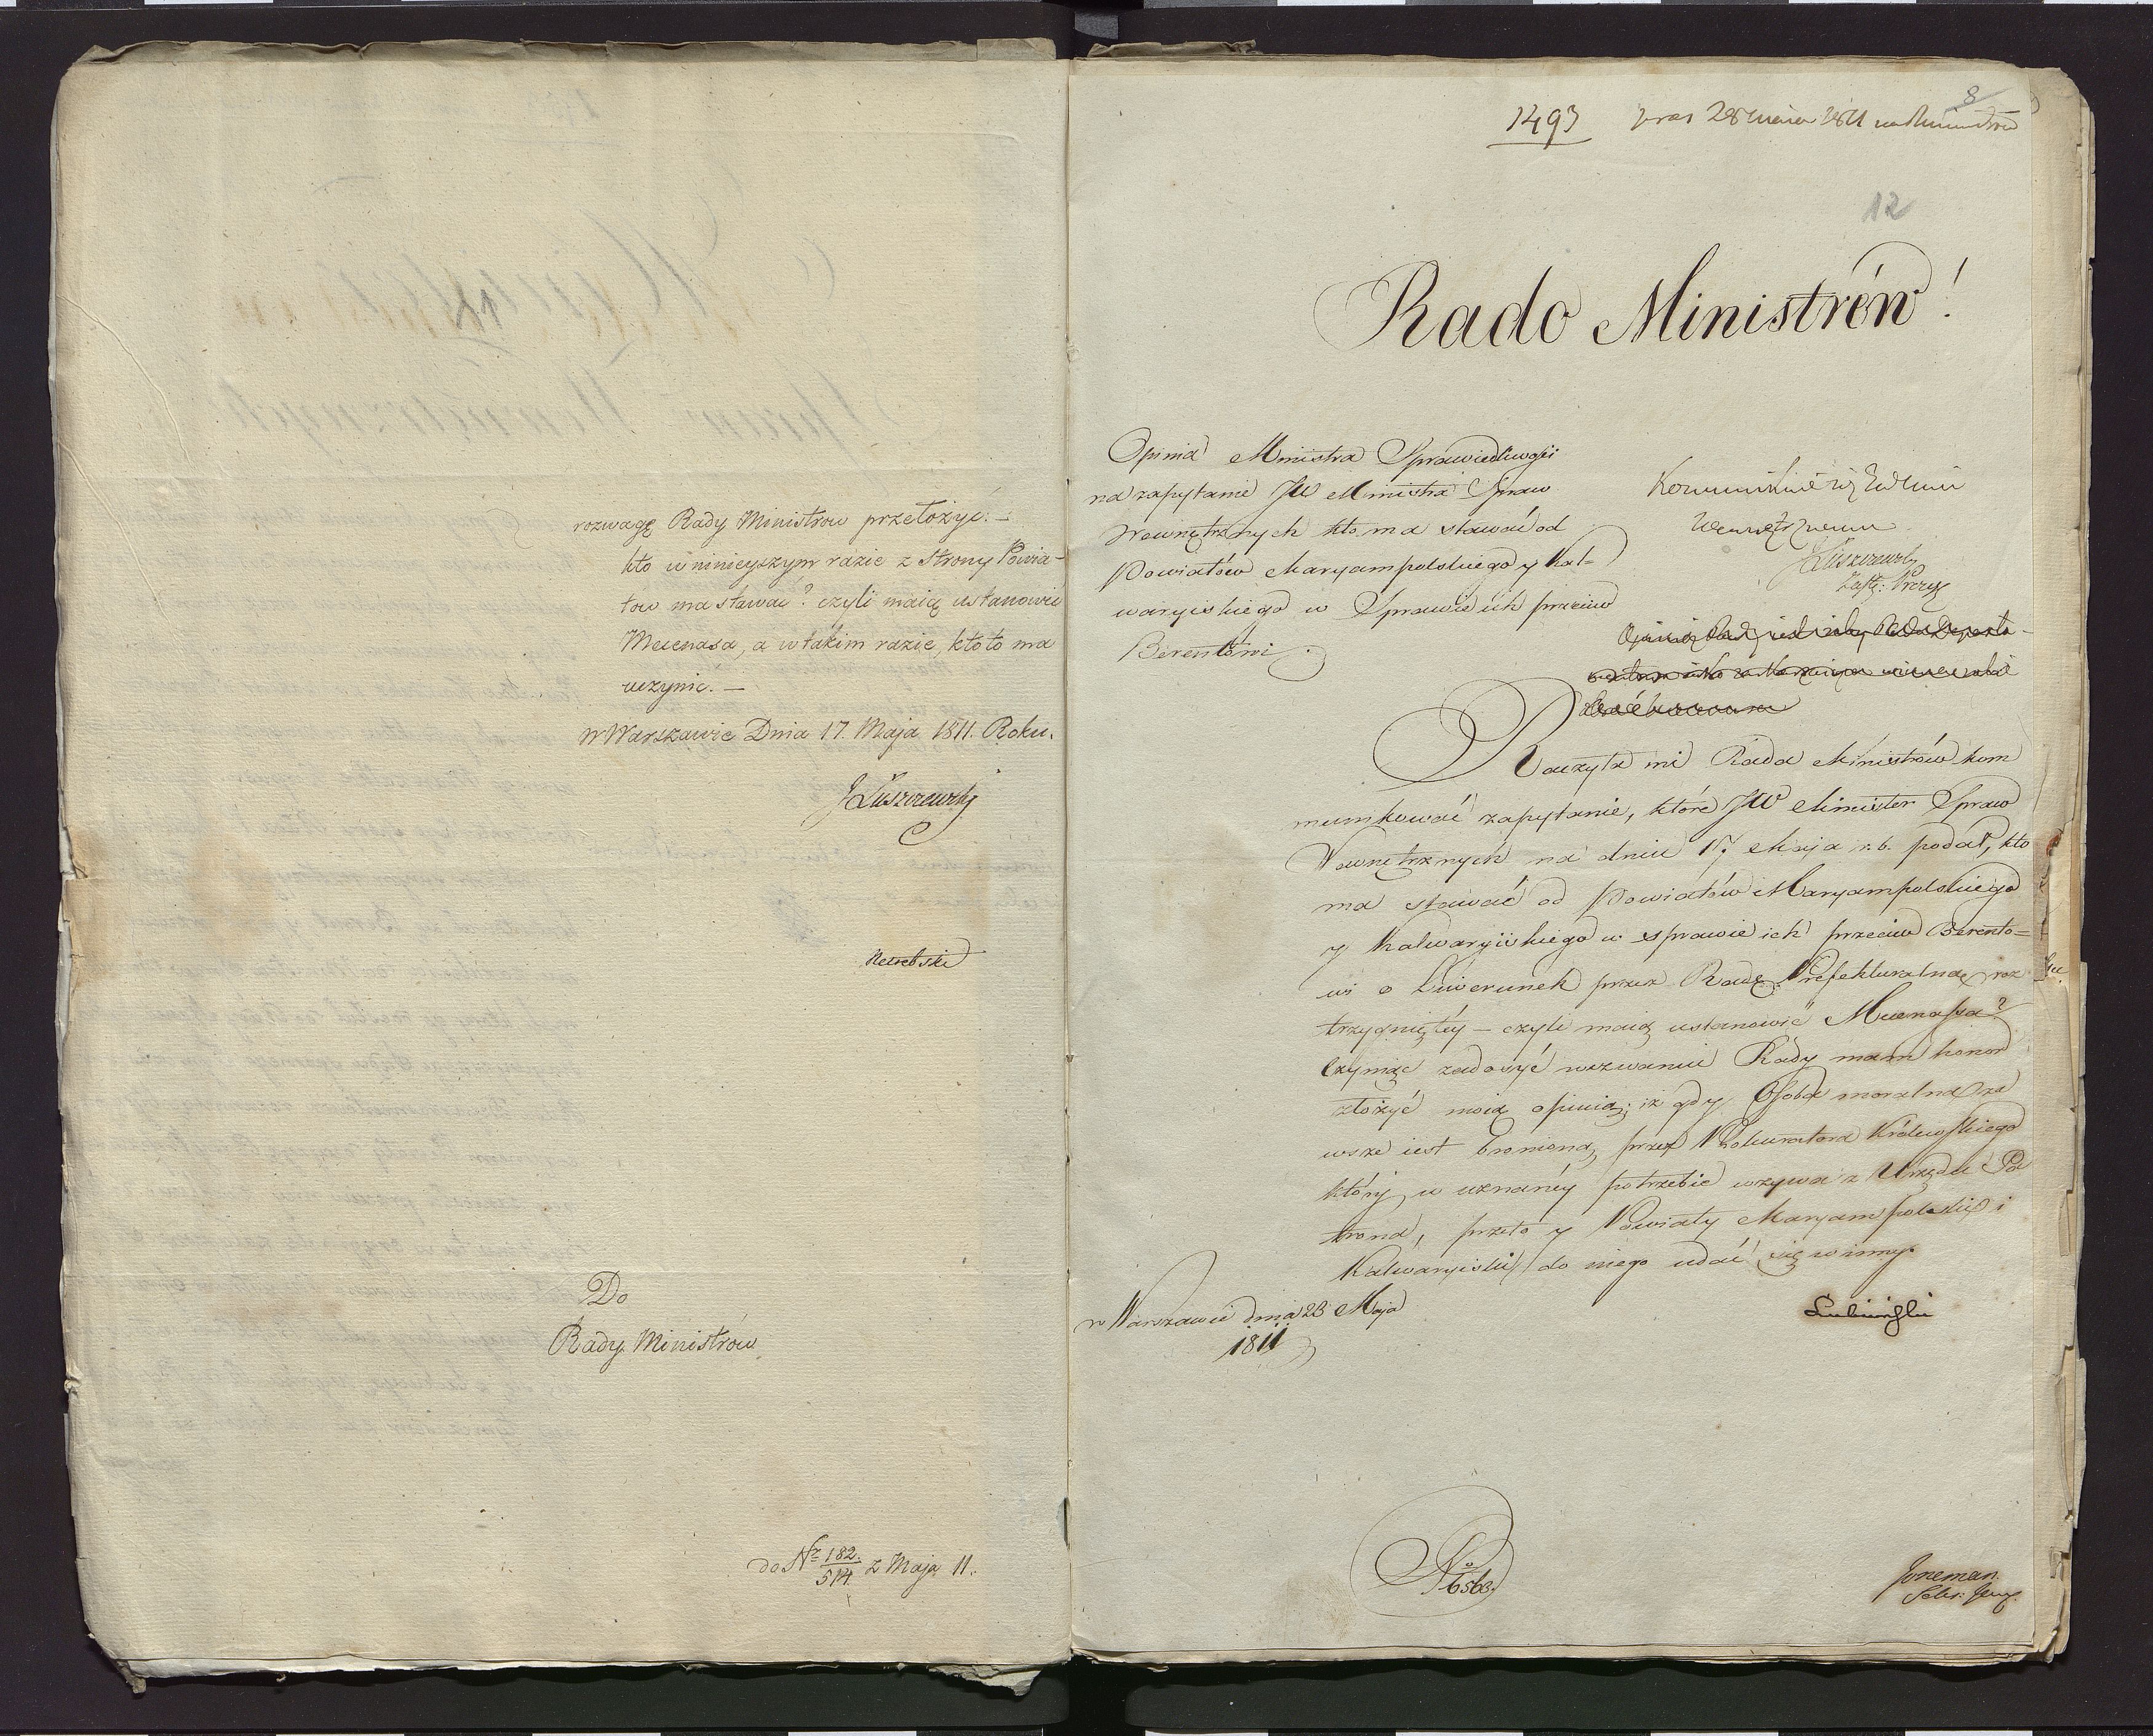 rozwagę Rady Ministrow przełożyć. —
kto w ninieyszym razie z Strony Powia-
tow ma stawać? czyli maią ustanowić
Mecenasa, a w takim razie, kto to ma
uczynić. —
w Warszawie Dnia 17. Maja 1811. Roku.
JŁuszczewski
Do
Rady Ministrów
do Nr 182./514. z Maja 11.
8
1493 pras 28 maia 1811
12
Rado Ministrów!
Opinia Ministra Sprawiedliwości
na zapytanie JW Ministra Spraw
Wewnętrznych kto ma stawać od
Powiatów Maryampolskiego y Kal-
waryiskiego w Sprawie ich przeciw
Berentowi.
Wewnętrznemu
JŁuszczewski
Raczyła mi Rada Ministrów kom
munikować zapytanie, które JW Minister Spraw
Wewnętrznych na dniu 17 Maja r. b. podał, kto
ma stawać od Powiatów Maryampolskiego
y Kalwaryiskiego w sprawie ich przeciw Berento=
wi o Liwerunek przez Radę Prefekturalną roz
trzygniętéy — czyli maią ustanowić Mecenassa?
Czyniąc zadosyć wezwaniu Rady mam honor
złożyć moią opinią; iż gdy Osoba moralna za
wsze iest bronioną przez Prokuratora Królewskiego
który w uznanéy potrzebie wzywa z Urzędu Pa
trona, przeto y Powiaty Maryampolski i
Kalwaryiski do niego udać się winny.
w Warszawie dnia 28 Maja
1811
Lubieński
No 6563.